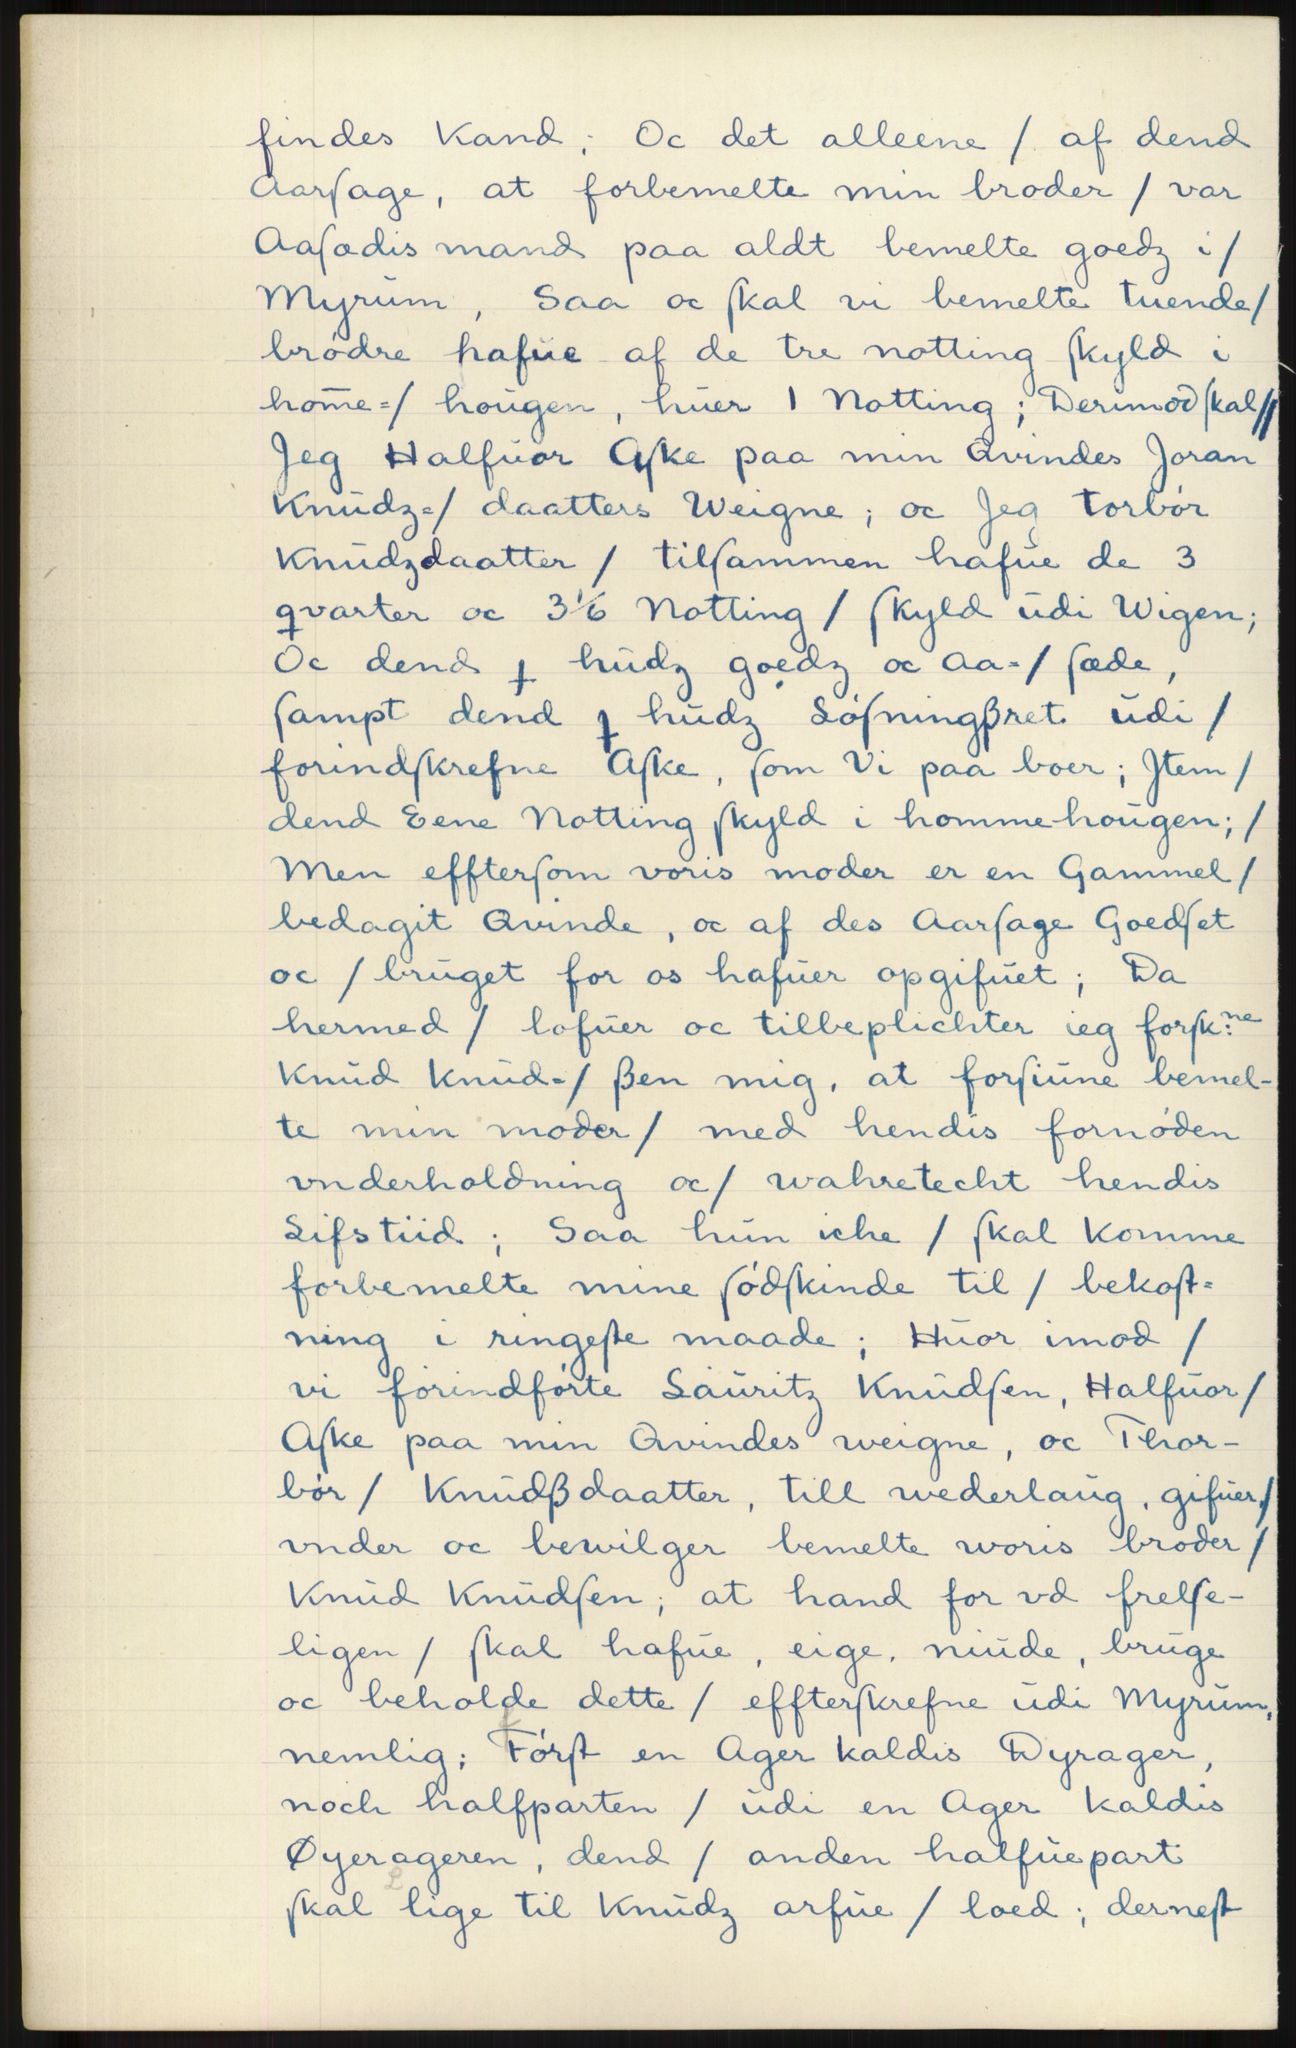 findes Kand; Oc det alleene / af dend
Aarſage, at forbemelte min broder / var
Aaſædis mand paa aldt bemelte goedz i /
Myrum, Saa oc ſkal vi bemelte tuende /
brødre hafue af de tre notting ſkyld i
hom̄e=/ hougen, huer 1 Notting; Derimod ſkal //
Jeg Halfuor Aſke paa min Qvindes Joran
Knudz=/ daatters Weigne; oc Jeg torbør
Knudzdaatter / tilſammen hafue de 3
qvarter oc 3 1/6 Notting / ſkyld udi Wigen;
Oc dend hudz goedz oc Aa=/ ſæde,
ſampt dend hudz Løſningßret udi /
forindſkrefne Aſke, ſom Vi paa boer; Jtem /
dend Eene Notting ſkyld i hommehougen; /
Men efftersom voris moder er en Gammel /
bedagit Qvinde, oc af des Aarſage Goedſet
oc / bruget for os hafuer opgifuet; Da
hermed / lofuer oc tilbeplichter ieg forſk:ne
Knud Knud=/ ßen mig, at forſiune bemel-
te min moder / med hendis fornøden
vnderholdning oc / wahretecht hendis
Lifstiid; Saa hun iche / ſkal komme
forbemelte mine ſødſkinde til / bekoſt=
ning i ringeſte maade; Huor imod /
vi forindførte Lauritz Knudſen, Halfuor /
Aſke paa min Qvindes weigne, oc Thor-
bør / Knudßdaatter, till wederlaug, gifuer, /
vnder oc bewilger bemelte woris broder /
Knud Knudſen; at hand for vd frelſe-
ligen / ſkal hafue, eige, niude, bruge
oc beholde dette / effterſkrefne udi Myrum,
nemlig; Førſt en Ager kaldis Dyrager,
noch halfparten / udi en Ager kaldis
Øyerageren, dend / anden halfuepart
ſkal lige til Knudz arfue / loed; derneſt